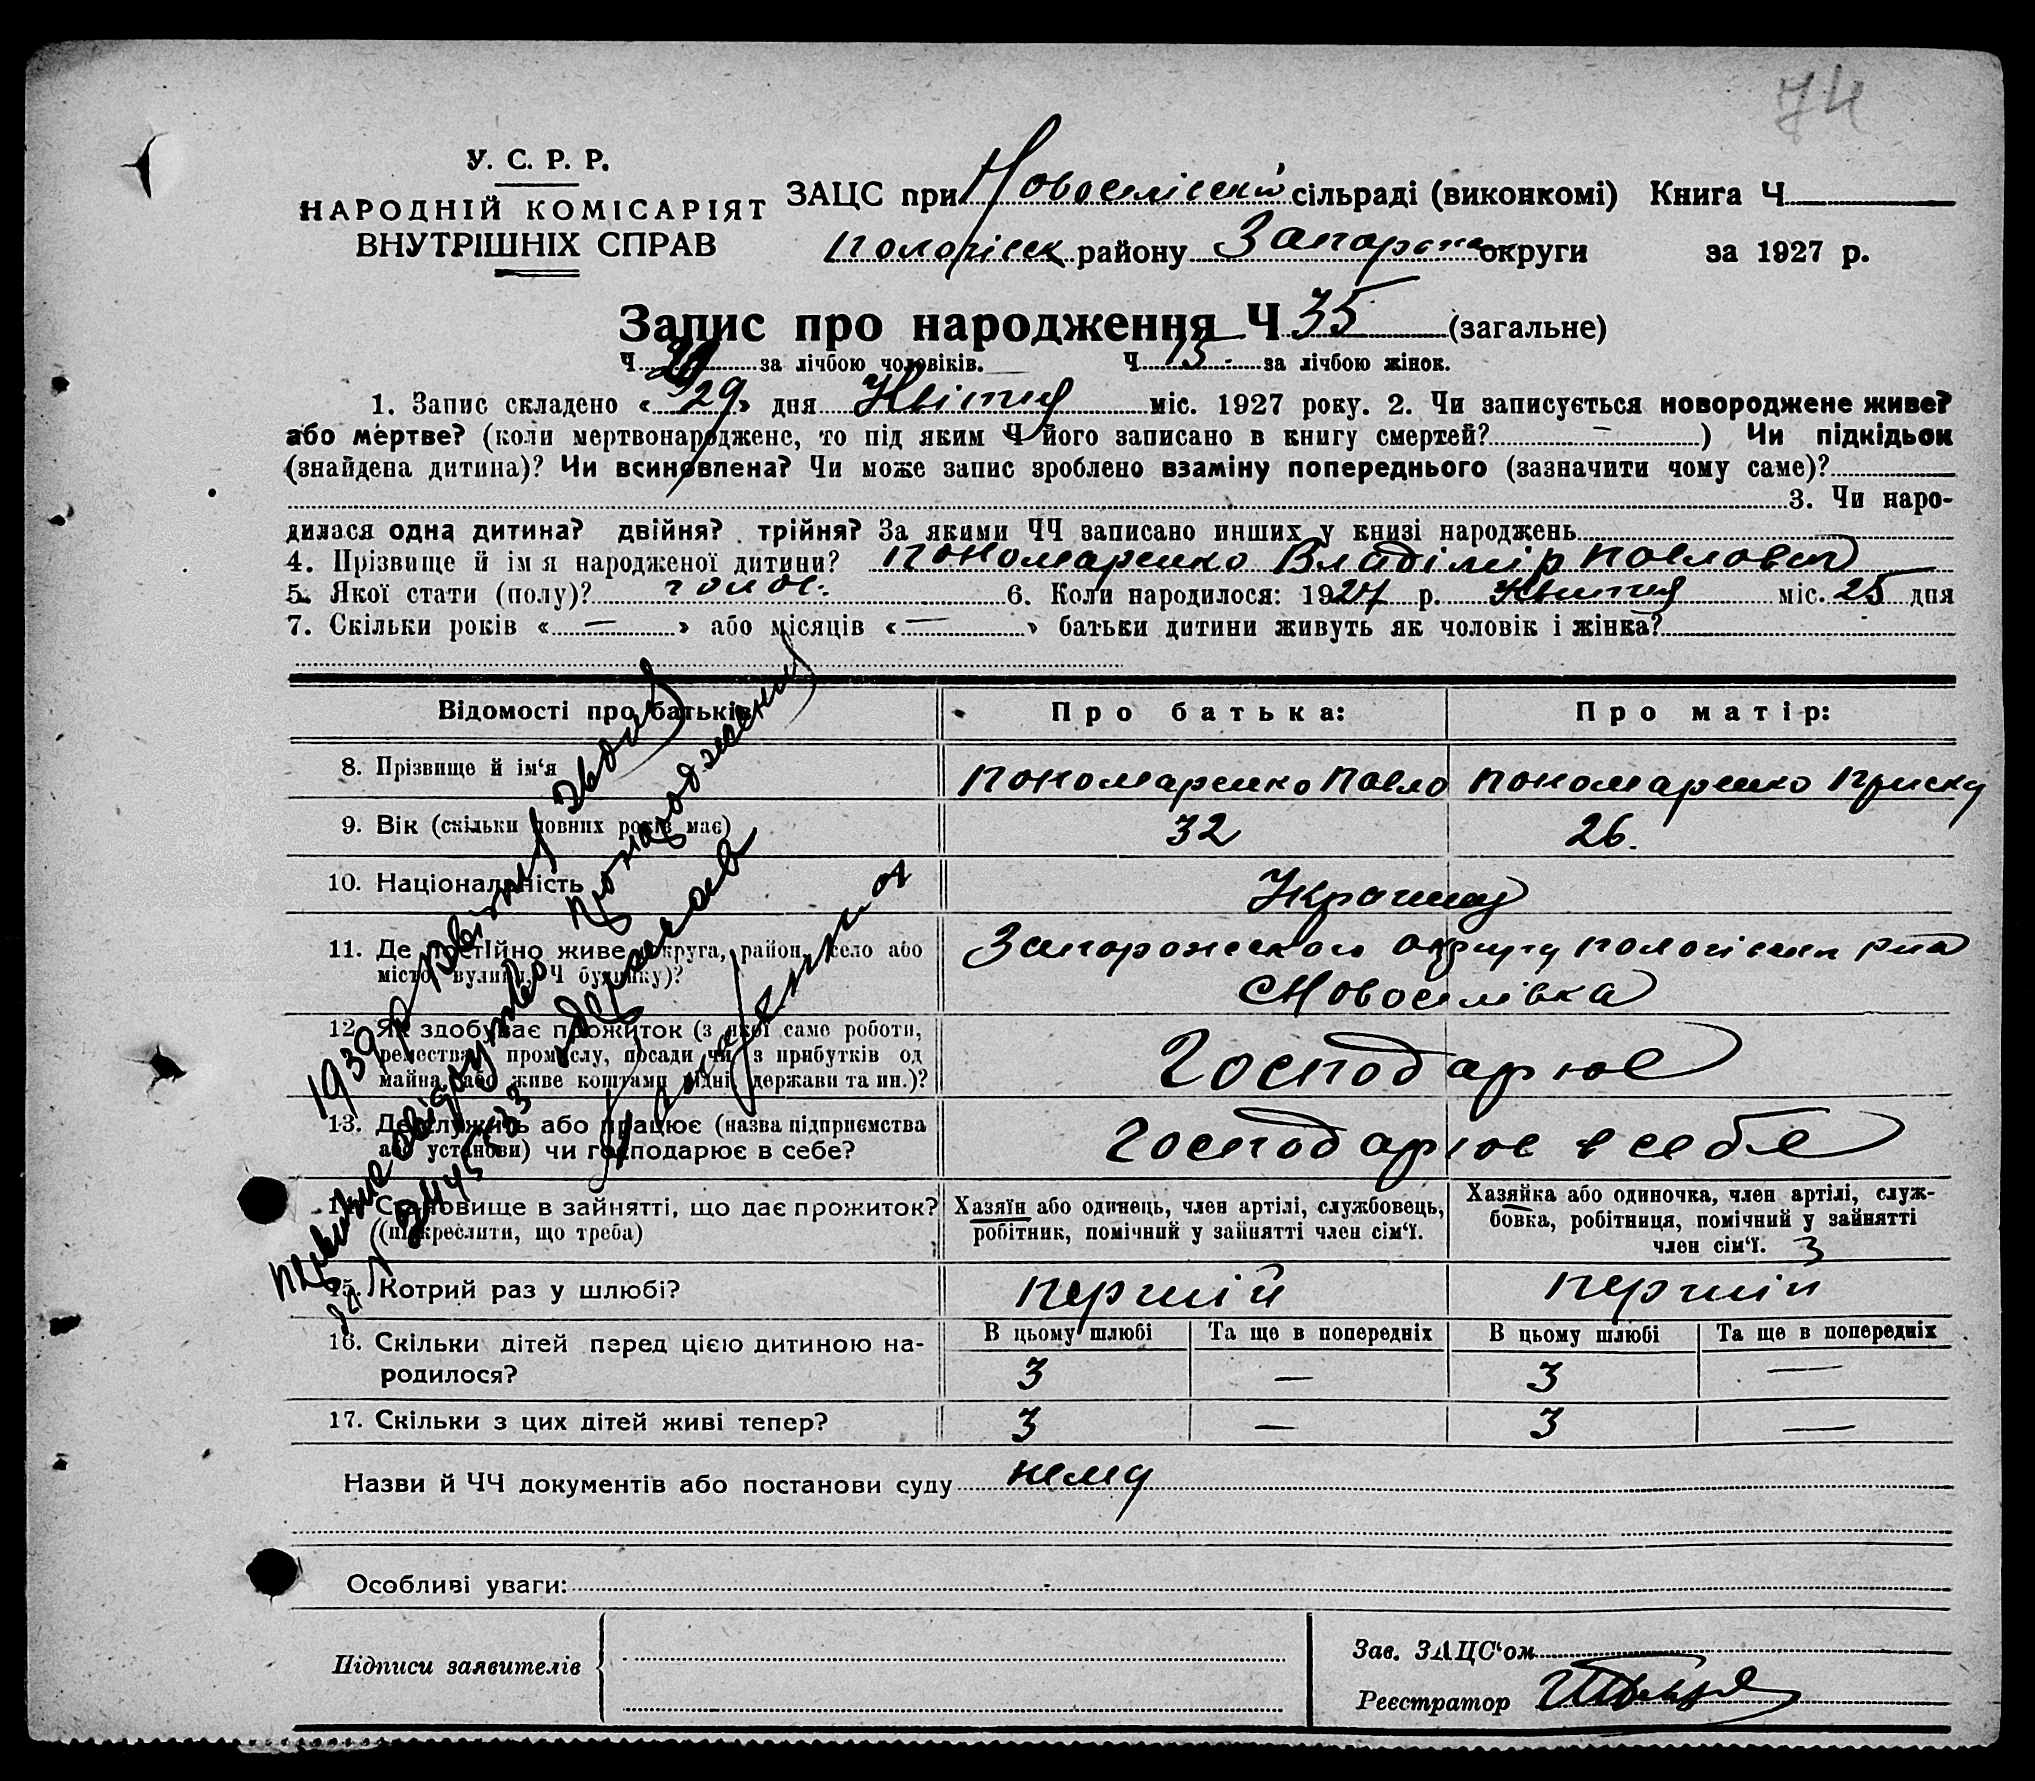 74
У. С. Р. Р.
НАРОДНІЙ КОМІСАРІЯТ
ВНУТРІШНІХ СПРАВ
ЗАЦС при сільраді (виконкомі) Книга Ч
району округи за 1927 р.
Запис про народження Ч 35 (загальне)
Ч за лічбою чоловіків. Ч 15 за лічбою жінок.
1. Запис складено « 29 » дня Квітня міс. 1927 року. 2. Чи записується новороджене живе?
або мертве? (коли мертвонароджене, то під яким Ч його записано в книгу смертей? — ) Чи підкідьок
(знайдена дитина)? Чи всиновлена? Чи може запис зроблено взаміну попереднього (зазначити чому саме)?
3. Чи наро-
дилася одна дитина? двійня? трійня? За якими ЧЧ записано инших у книзі народжень
4. Прізвище й ім я народженої дитини? Пономаренко Владімір Павлович
5. Якої статі (полу)? 6. Коли народилося: 1927 р. Квітня міс. 25 дня
7. Скільки років « — » або місяців « — » батьки дитини живуть як чоловік і жінка?
Відомості про батьків Про батька: Про матір:
8. Прізвище й ім'я Пономаренко Павло Пономаренко Приска
9. Вік (скільки повних років має) 32 26.
10. Національність
11. Де постійно живе (округа, район, село або
місто, вулиця, Ч будинку)?
Новоселівка
12. Як здобуває прожиток (з якої саме роботи,
ремества, промислу, посади чи з прибутків од
майна, або живе коштами рідні, держави та ин.)?
Господарює
13. Де служить або працює (назва підприємства
або установи) чи господарює в себе?
Господарює в себе
14. Становище в зайнятті, що дає прожиток?
(підкреслити, що треба)
Хазяїн або одинець, член артілі, службовець,
робітник, помічний у зайнятті член сім'ї.
Хазяйка або одиночка, член артілі, служ-
бовка, робітниця, помічний у зайнятті
член сім'ї. 3
15. Котрий раз у шлюбі? Першій Першій
16. Скільки дітей перед цією дитиною на-
родилося?
В цьому шлюбі Та ще в попередніх В цьому шлюбі Та ще в попередніх
3 — 3 —
17. Скільки з цих дітей живі тепер? 3 — 3 —
Назви й ЧЧ документів або постанови суду нема
Особливі уваги:
Підписи заявителів
Зав. ЗАЦС'ом
Реєстратор
1939 р.